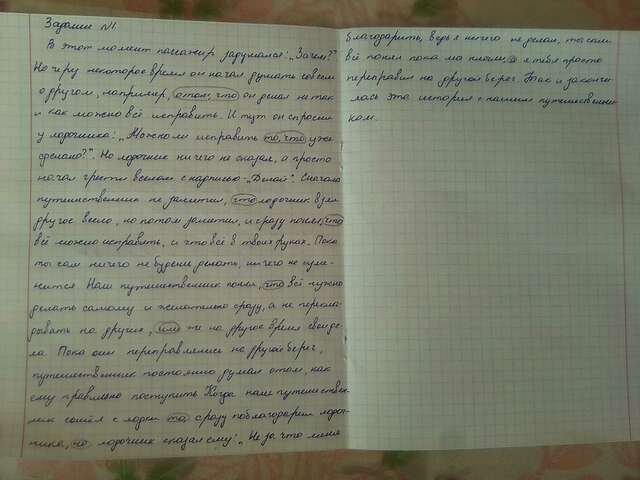 Задание №1.
В этот момент пассажир задумался: „Зачем?"
Но через некоторое время он начал думать совсем
о другом, например, о том, что он делал не так
и как можно всё исправить. И тут он спросил
у лодочника: „Можно ли исправить то, что уже
сделано?". Но лодочник ничего не сказал, а просто
начал грести веслом с надписью - „Делай". Сначала
путешественник не заметил, что лодочник взял
другое весло, но потом заметил, и сразу понял, что
всё можно исправить, и что всё в твоих руках. Пока
ты сам ничего не будешь делать, ничего не изме-
нится. Наш путешественник понял, что всё нужно
делать самому и желательно сразу, а не перекла-
дывать на других, или же на другое время свои де-
ла. Пока они переправлялись на другой берег,
путешественник постоянно думал о том, как
ему правильно поступить. Когда наш путешествен-
ник сошёл с лодки то сразу поблагодарил лодоч-
ника, но лодочник сказал ему: „Не за что меня
благодарить, ведь я ничего не делал, ты сам
всё понял пока мы плыли, а я тебя просто
переправил на другой берег. Так и закончи-
лась эта история с нашим путешественни-
ком.